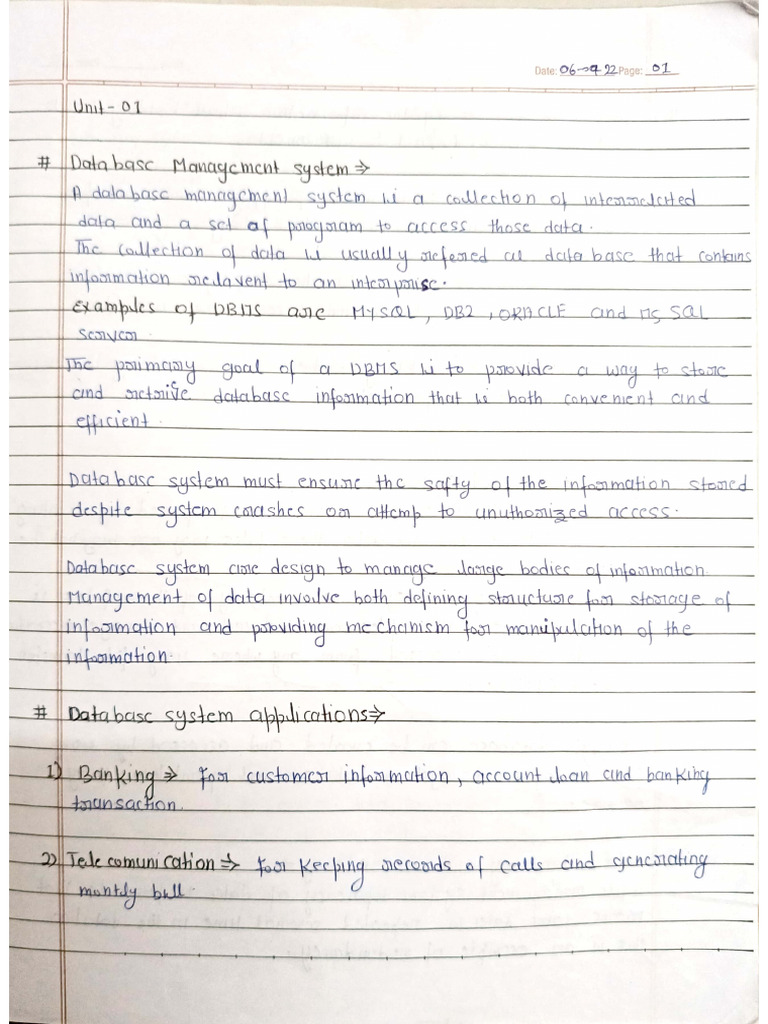 Date: 06-09-22 Page: 01
Unit-01
# Database Management system ⇒
A database management system is a collection of interrelated
data and a set of program to access those data.
The collection of data is usually refered as database that contains
information relavent to an interprise.
Examples of DBMS are MySQL, DB2, ORACLE and MS SQL
Server.
The primary goal of a DBMS is to provide a way to store
and retrive database information that is both convenient and
efficient.
Database system must ensure the safty of the information stored
despite system crashes or attemp to unuthorized access.
Database system are design to manage large bodies of information.
Management of data involve both defining structure for storage of
information and providing mechanism for manipulation of the
information.
# Database system applications ⇒
1) Banking ⇒ for customer information, account loan and banking
transaction.
2) Tele comunication ⇒ for keeping records of calls and generating
montly bill.